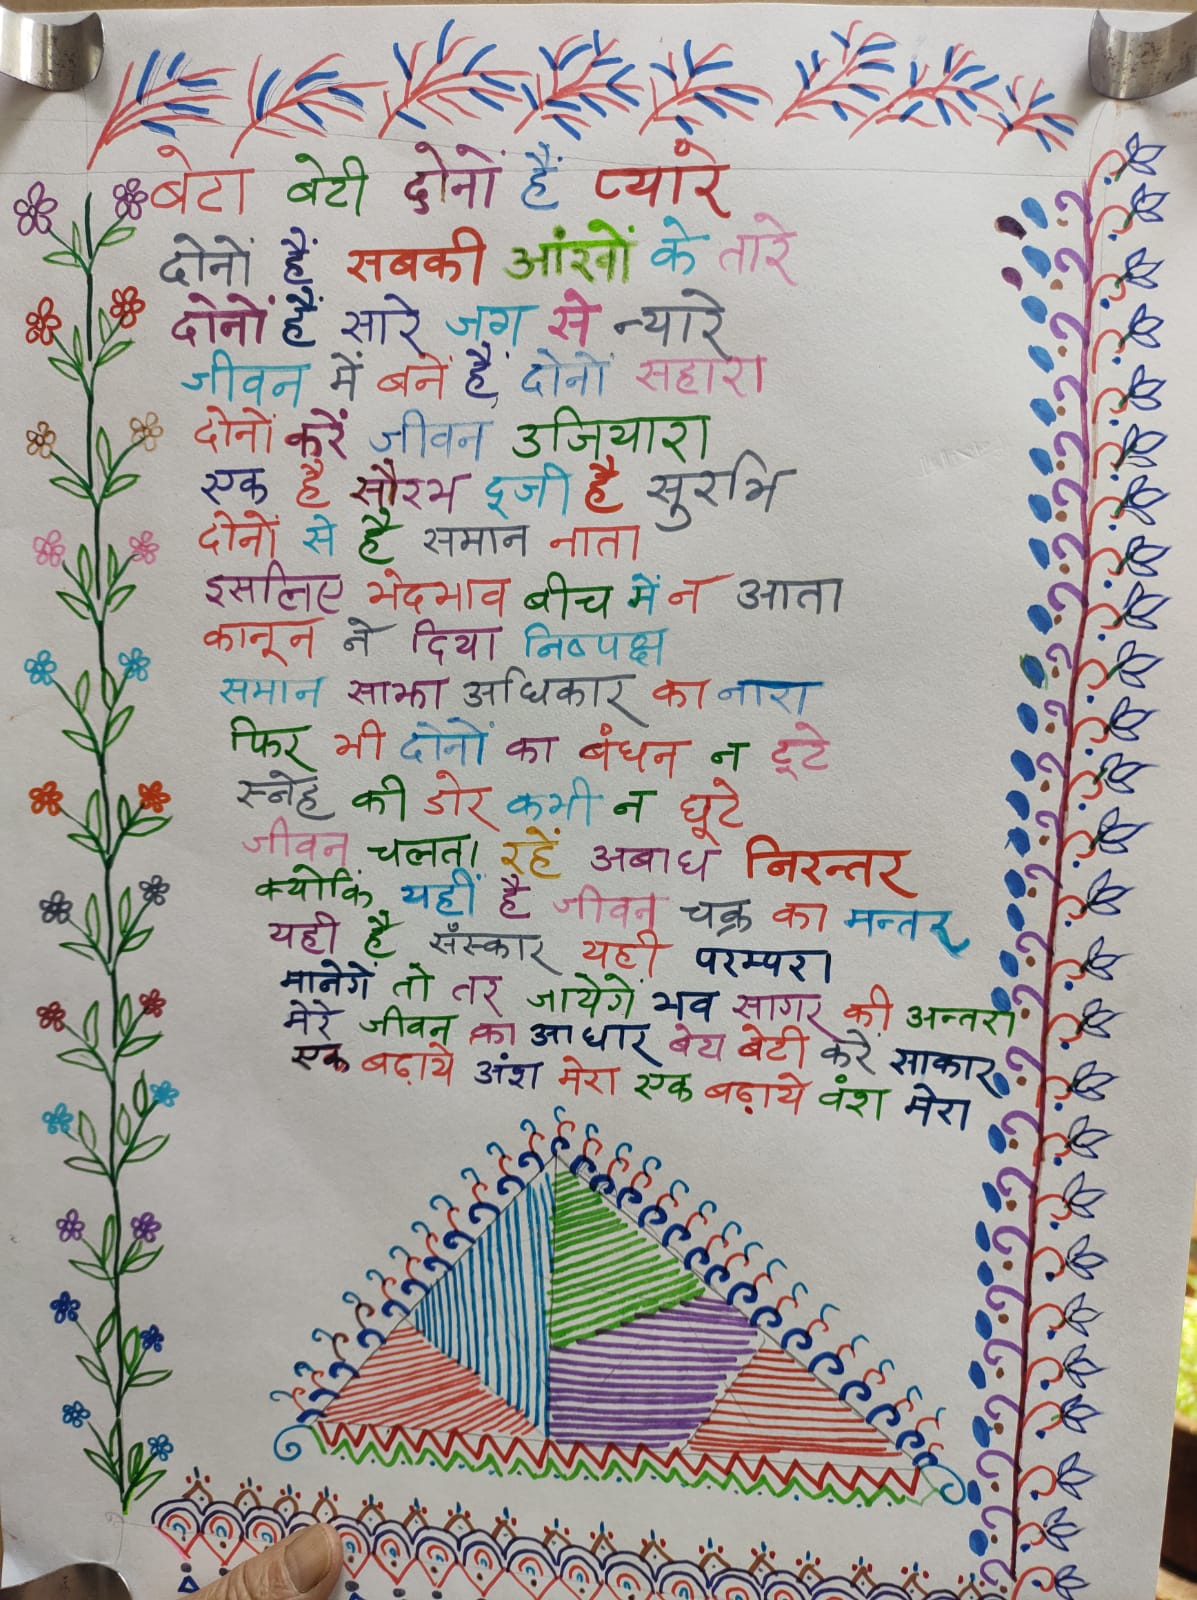 बेटा बेटी दोनों हैं प्यारे
दोनों हैं सबकी आंखों के तारे
दोनों हैं सारे जग से न्यारे
जीवन में बनें हैं दोनों सहारा
दोनों करें जीवन उजियारा
एक है सौरभ दूजी है सुरभि
दोनों से है समान नाता
इसलिए भेदभाव बीच में न आता
कानून ने दिया निष्पक्ष
समान साझा अधिकार का नारा
फिर भी दोनों का बंधन न टूटे
स्नेह की डोर कभी न छूटे
जीवन चलता रहें अबाध निरन्तर
क्योकिं यहीं है जीवन चक्र का मन्तर
यही है सँस्कार यही परम्परा
मानेगें तो तर जायेगें भव सागर की अन्तरा
मेरे जीवन का आधार बेटा बेटी करें साकार
एक बढ़ाये अंश मेरा एक बढ़ाये वंश मेरा